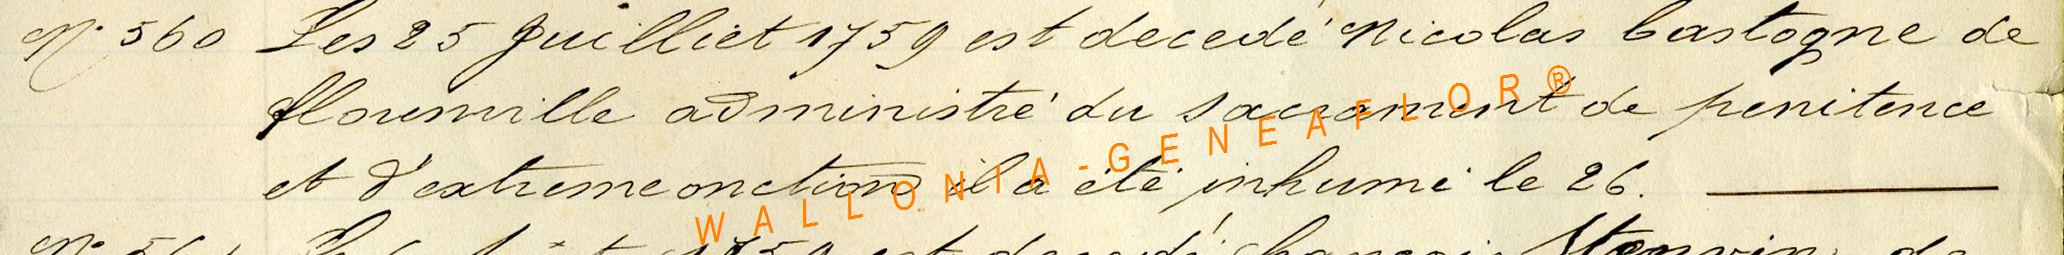 N° 560 Les 25 Juilliet 1759 est decedé Nicolas bastogne de
florenville administré du sacrament de penitence
et d'extreme onction il a été inhumé le 26.
WALLONIA-GENEAFLOR®
N° 1759 est decedé de